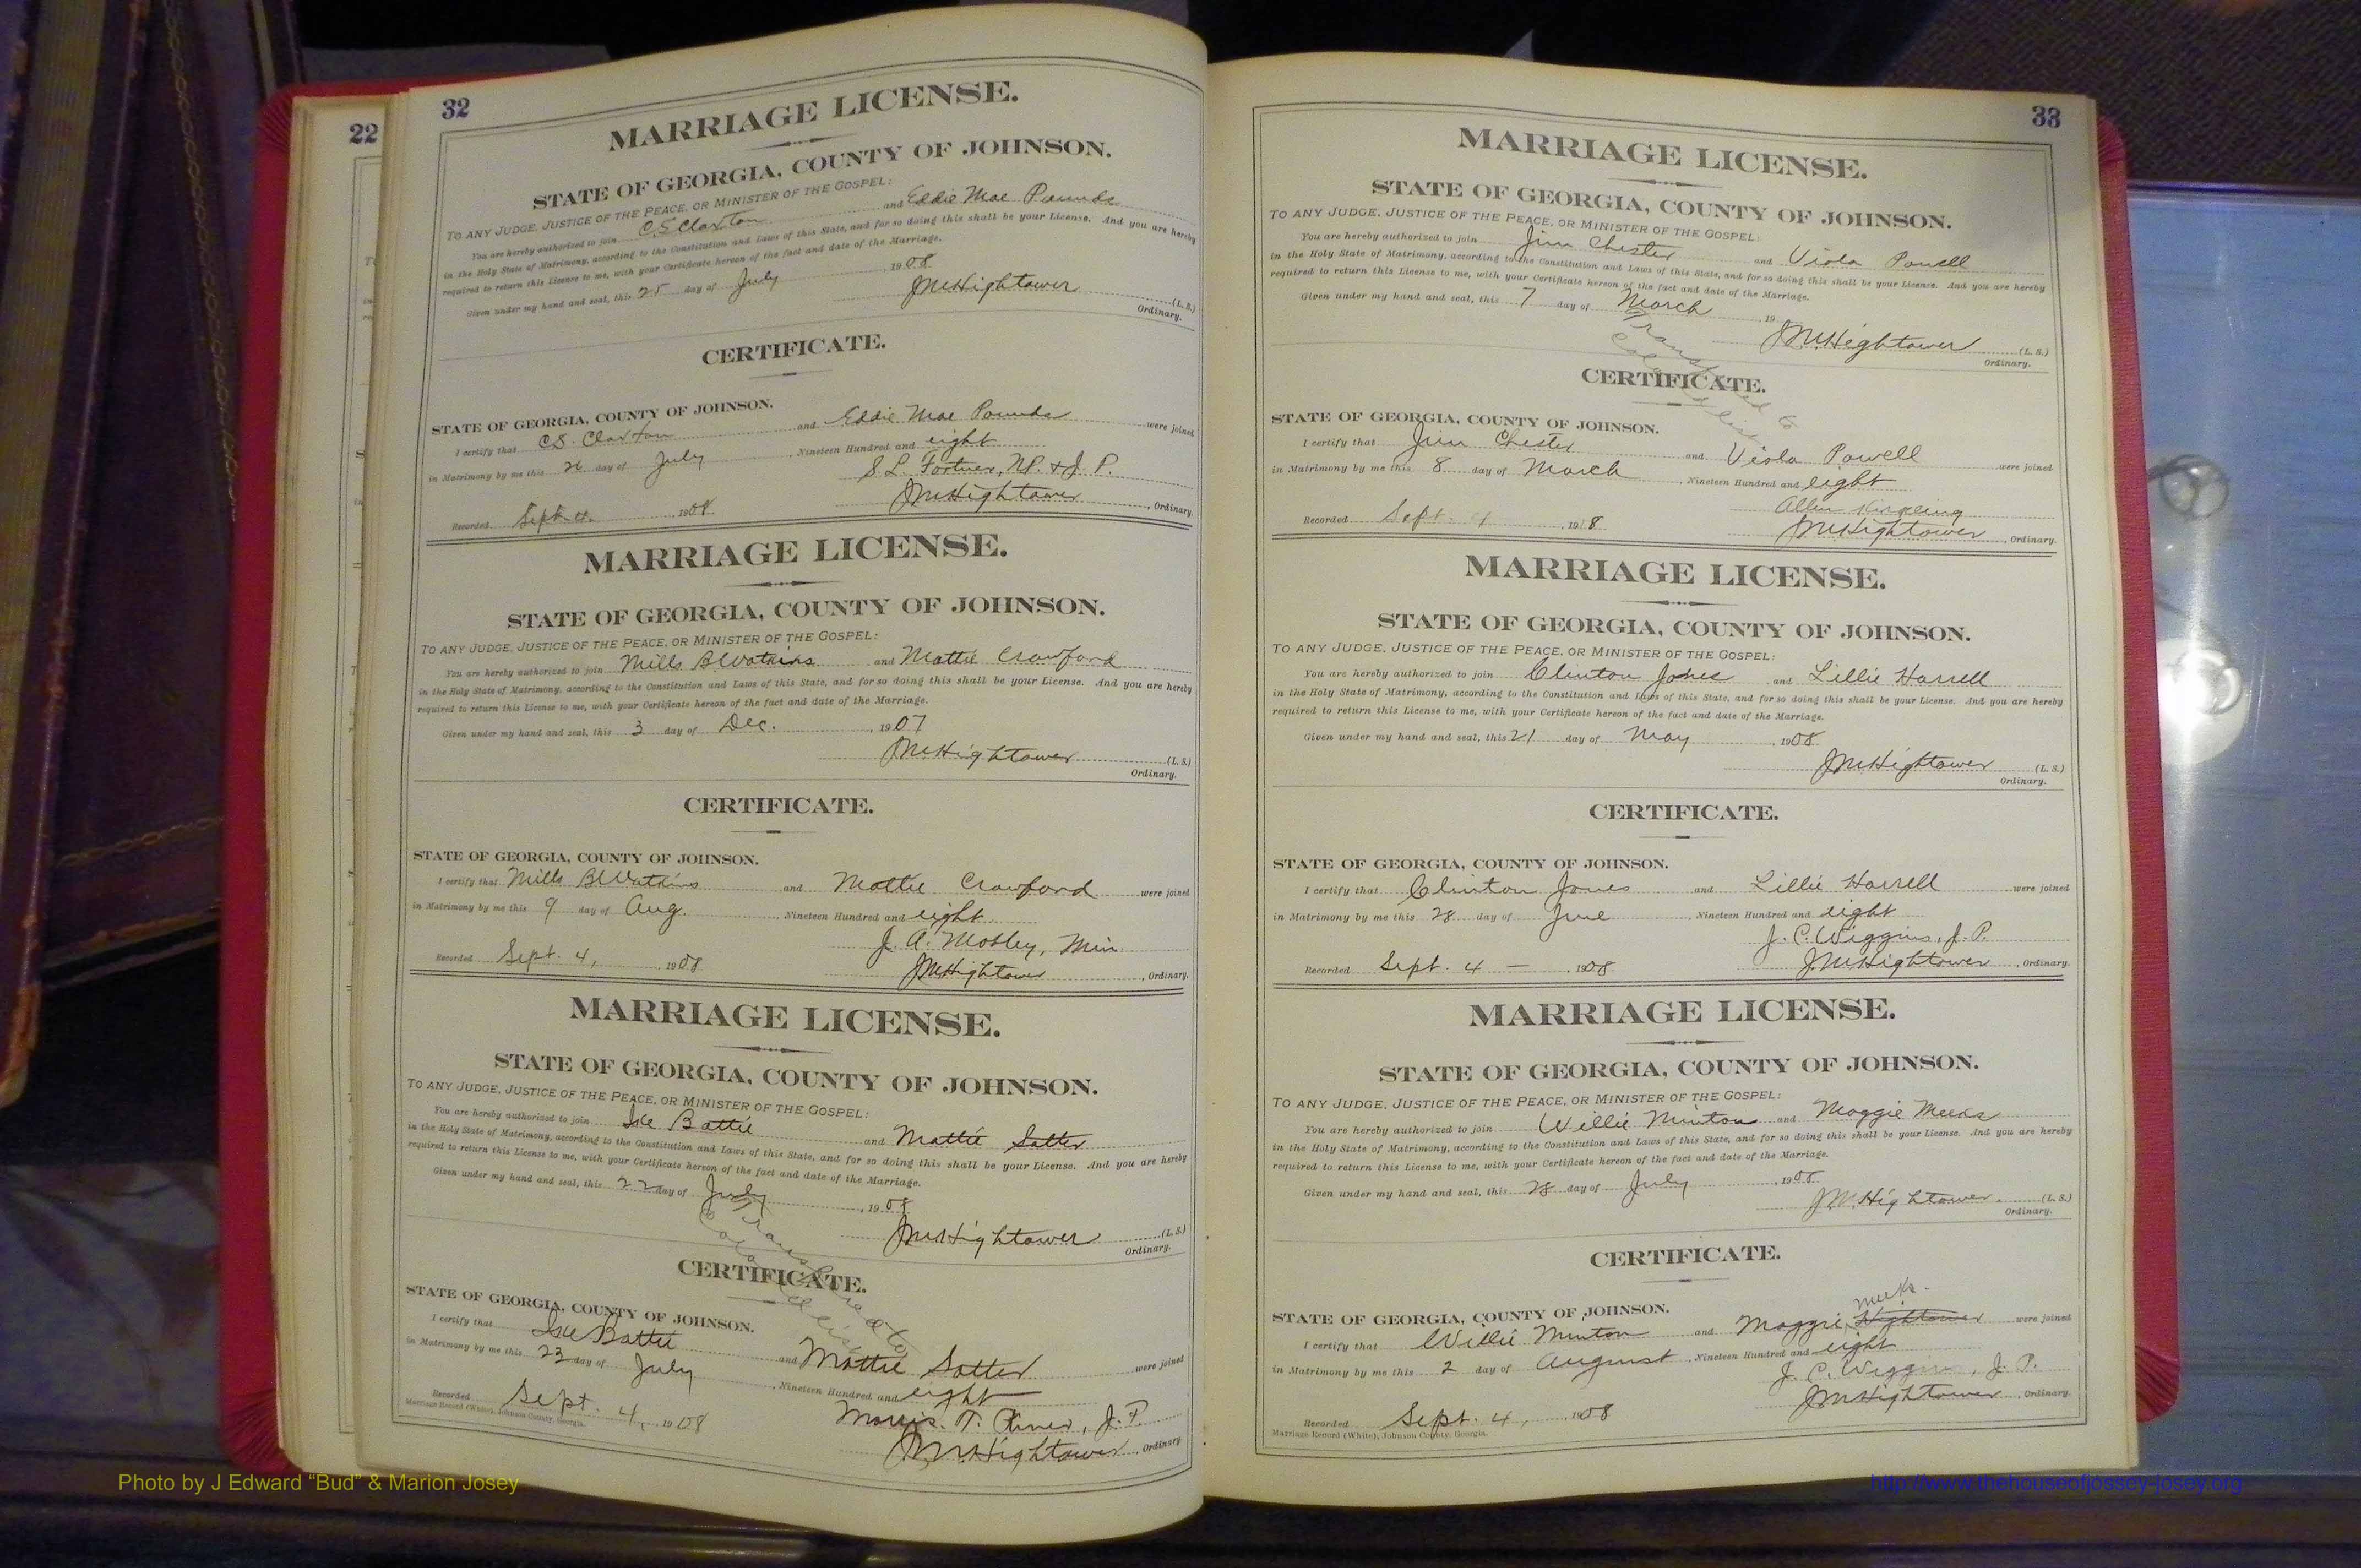 22
32
MARRIAGE LICENSE.
STATE OF GEORGIA, COUNTY OF JOHNSON.
TO ANY JUDGE, JUSTICE OF THE PEACE, OR MINISTER OF THE GOSPEL:
You are hereby authorized to join C.S. Claxton and Eddie Mae Pounds
in the Holy State of Matrimony, according to the Constitution and Laws of this State, and for so doing this shall be your License. And you are hereby
required to return this License to me, with your Certificate hereon of the fact and date of the Marriage.
Given under my hand and seal, this 25 day of July 1908
JMHightower (L. S.)
Ordinary.
CERTIFICATE.
STATE OF GEORGIA, COUNTY OF JOHNSON.
I certify that C.S. Claxton and Eddie Mae Pounds were joined
in Matrimony by me this 26 day of July, Nineteen Hundred and eight
S. L. Fortner, N.P. & J. P.
Recorded Sept. 4. 1908 JMHightower, Ordinary.
MARRIAGE LICENSE.
STATE OF GEORGIA, COUNTY OF JOHNSON.
TO ANY JUDGE, JUSTICE OF THE PEACE, OR MINISTER OF THE GOSPEL:
You are hereby authorized to join Mills B Watkins and Mattie Crawford
in the Holy State of Matrimony, according to the Constitution and Laws of this State, and for so doing this shall be your License. And you are hereby
required to return this License to me, with your Certificate hereon of the fact and date of the Marriage.
Given under my hand and seal, this 3 day of Dec., 1907
JMHightower (L. S.)
Ordinary.
CERTIFICATE.
STATE OF GEORGIA, COUNTY OF JOHNSON.
I certify that Mills B Watkins and Mattie Crawford were joined
in Matrimony by me this 9 day of Aug., Nineteen Hundred and eight
J. A. Mobley, Min.
Recorded Sept. 4, 1908 JMHightower, Ordinary.
MARRIAGE LICENSE.
STATE OF GEORGIA, COUNTY OF JOHNSON.
TO ANY JUDGE, JUSTICE OF THE PEACE, OR MINISTER OF THE GOSPEL:
You are hereby authorized to join Ike Battie and Mattie Salter
in the Holy State of Matrimony, according to the Constitution and Laws of this State, and for so doing this shall be your License. And you are hereby
required to return this License to me, with your Certificate hereon of the fact and date of the Marriage.
Given under my hand and seal, this 22 day of July, 1908
JMHightower (L. S.)
Ordinary.
Transferred to
Colored
CERTIFICATE.
STATE OF GEORGIA, COUNTY OF JOHNSON.
I certify that Ike Battie and Mattie Salter were joined
in Matrimony by me this 23 day of July, Nineteen Hundred and eight
Morris. T. J. P.
Recorded Sept. 4, 1908 JMHightower, Ordinary.
Marriage Record (White), Johnson County, Georgia.
33
MARRIAGE LICENSE.
STATE OF GEORGIA, COUNTY OF JOHNSON.
TO ANY JUDGE, JUSTICE OF THE PEACE, OR MINISTER OF THE GOSPEL:
You are hereby authorized to join Jim Chester and Viola Powell
in the Holy State of Matrimony, according to the Constitution and Laws of this State, and for so doing this shall be your License. And you are hereby
required to return this License to me, with your Certificate hereon of the fact and date of the Marriage.
Given under my hand and seal, this 7 day of March, 19
JMHightower (L. S.)
Ordinary.
Transferred to
Colored
CERTIFICATE.
STATE OF GEORGIA, COUNTY OF JOHNSON.
I certify that Jim Chester and Viola Powell were joined
in Matrimony by me this 8 day of March, Nineteen Hundred and eight
Allen
Recorded Sept. 4, 1908 JMHightower, Ordinary.
MARRIAGE LICENSE.
STATE OF GEORGIA, COUNTY OF JOHNSON.
TO ANY JUDGE, JUSTICE OF THE PEACE, OR MINISTER OF THE GOSPEL:
You are hereby authorized to join Clinton Jones and Lillie Harrell
in the Holy State of Matrimony, according to the Constitution and Laws of this State, and for so doing this shall be your License. And you are hereby
required to return this License to me, with your Certificate hereon of the fact and date of the Marriage.
Given under my hand and seal, this 21 day of May, 1908
JMHightower (L. S.)
Ordinary.
CERTIFICATE.
STATE OF GEORGIA, COUNTY OF JOHNSON.
I certify that Clinton Jones and Lillie Harrell were joined
in Matrimony by me this 28 day of June, Nineteen Hundred and eight
J. C. Wiggins, J. P.
Recorded Sept. 4 — 1908 JMHightower, Ordinary.
MARRIAGE LICENSE.
STATE OF GEORGIA, COUNTY OF JOHNSON.
TO ANY JUDGE, JUSTICE OF THE PEACE, OR MINISTER OF THE GOSPEL:
You are hereby authorized to join Willie Minton and Maggie Meeks
in the Holy State of Matrimony, according to the Constitution and Laws of this State, and for so doing this shall be your License. And you are hereby
required to return this License to me, with your Certificate hereon of the fact and date of the Marriage.
Given under my hand and seal, this 28 day of July, 1908
JM.Hightower. (L. S.)
Ordinary.
CERTIFICATE.
Meeks.
STATE OF GEORGIA, COUNTY OF JOHNSON.
I certify that Willie Minton and Maggie Hightower were joined
in Matrimony by me this 2 day of August, Nineteen Hundred and eight
J. C. Wiggins, J. P.
Recorded Sept. 4, 1908 JMHightower, Ordinary.
Marriage Record (White), Johnson County, Georgia.
Photo by J Edward “Bud” & Marion Josey
http://www.thehouseofjossey-josey.org